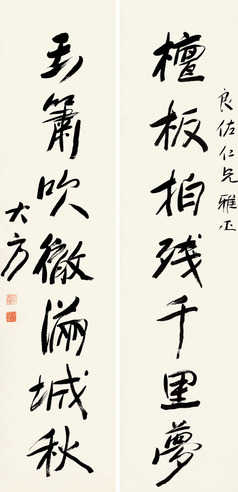 良佐仁兄雅正
檀板拍残千里夢
玉簫吹徹滿城秋
大方